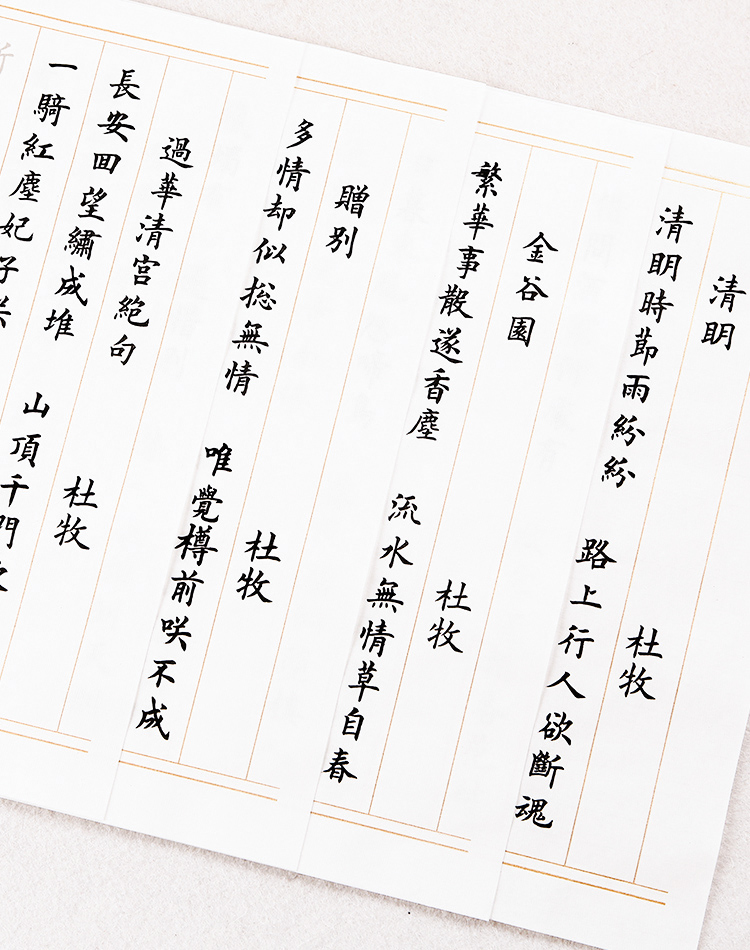 清眀 杜牧
清眀時節雨紛紛 路上行人欲斷魂
金谷園 杜牧
繁華事散遂香塵 流水無情草自春
贈別 杜牧
多情却似捴無情 唯覺樽前咲不成
過華清宮絕句 杜牧
長安囬望繡成堆 山頂千門
一騎紅塵妃子